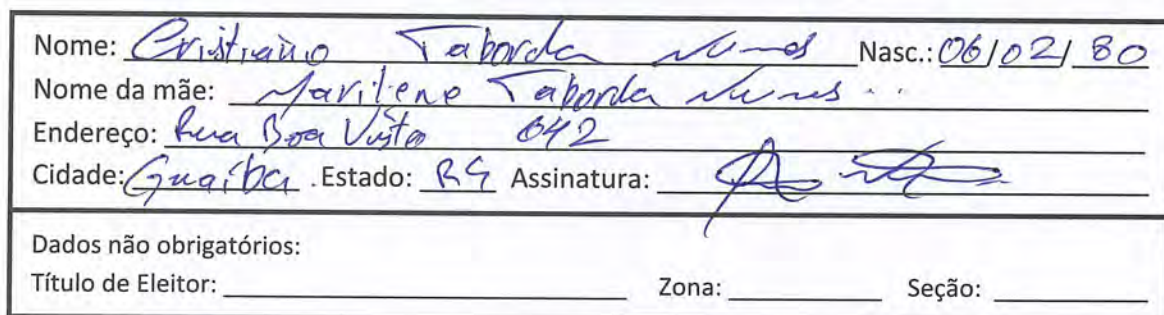 Nome: Cristiano Taborda Nunes Nasc.: 06/02/80
Nome da mãe: Marilene Taborda Nunes
Endereço: Rua Boa Vista 642
Cidade: Guaíba . Estado: RS Assinatura:
Dados não obrigatórios:
Título de Eleitor: Zona: Seção: